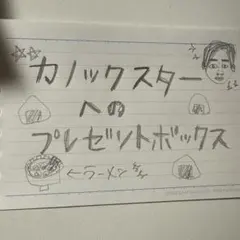 カノックスター
への
プレゼントボックス
←ラーメン